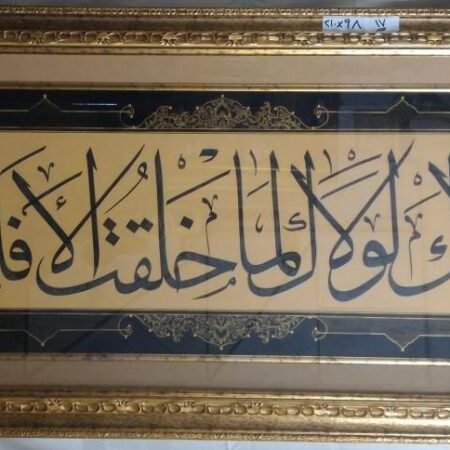 ٢١٠x٩٨
لولاك لما خلقت الأفلا